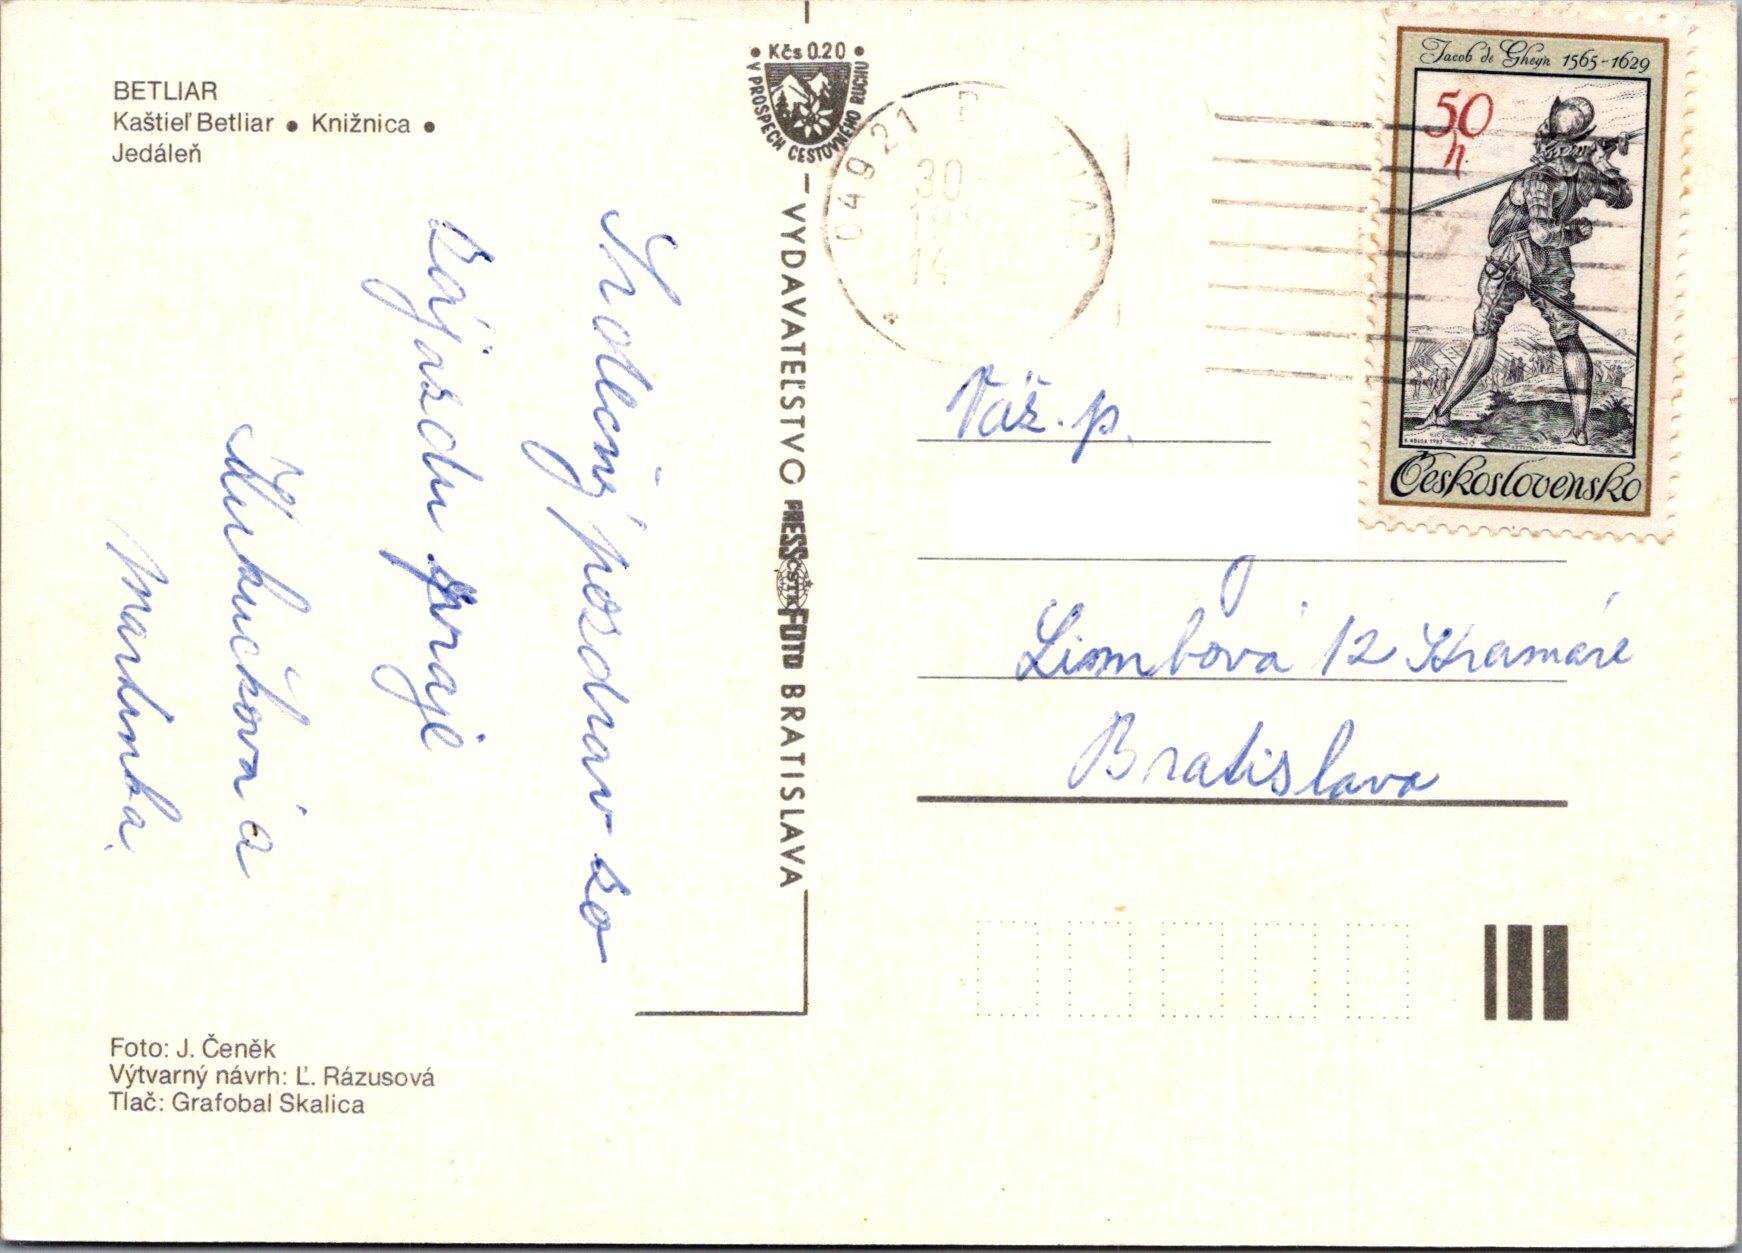 BETLIAR
Kaštieľ Betliar • Knižnica •
Jedáleň
• Kčs 0.20 •
V PROSPECH CESTOVNÉHO RUCHU
VYDAVATEĽSTVO PRESSFOTO BRATISLAVA
ČSTK
049 27
30
14
Jacob de Gheyn 1565-1629
50
h
Československo
Srdečný pozdrav zo
zájazdu praje
a
Martinka.
Váž. p.
Limbová 12 Kramáre
Bratislava
Foto: J. Čeněk
Výtvarný návrh: Ľ. Rázusová
Tlač: Grafobal Skalica